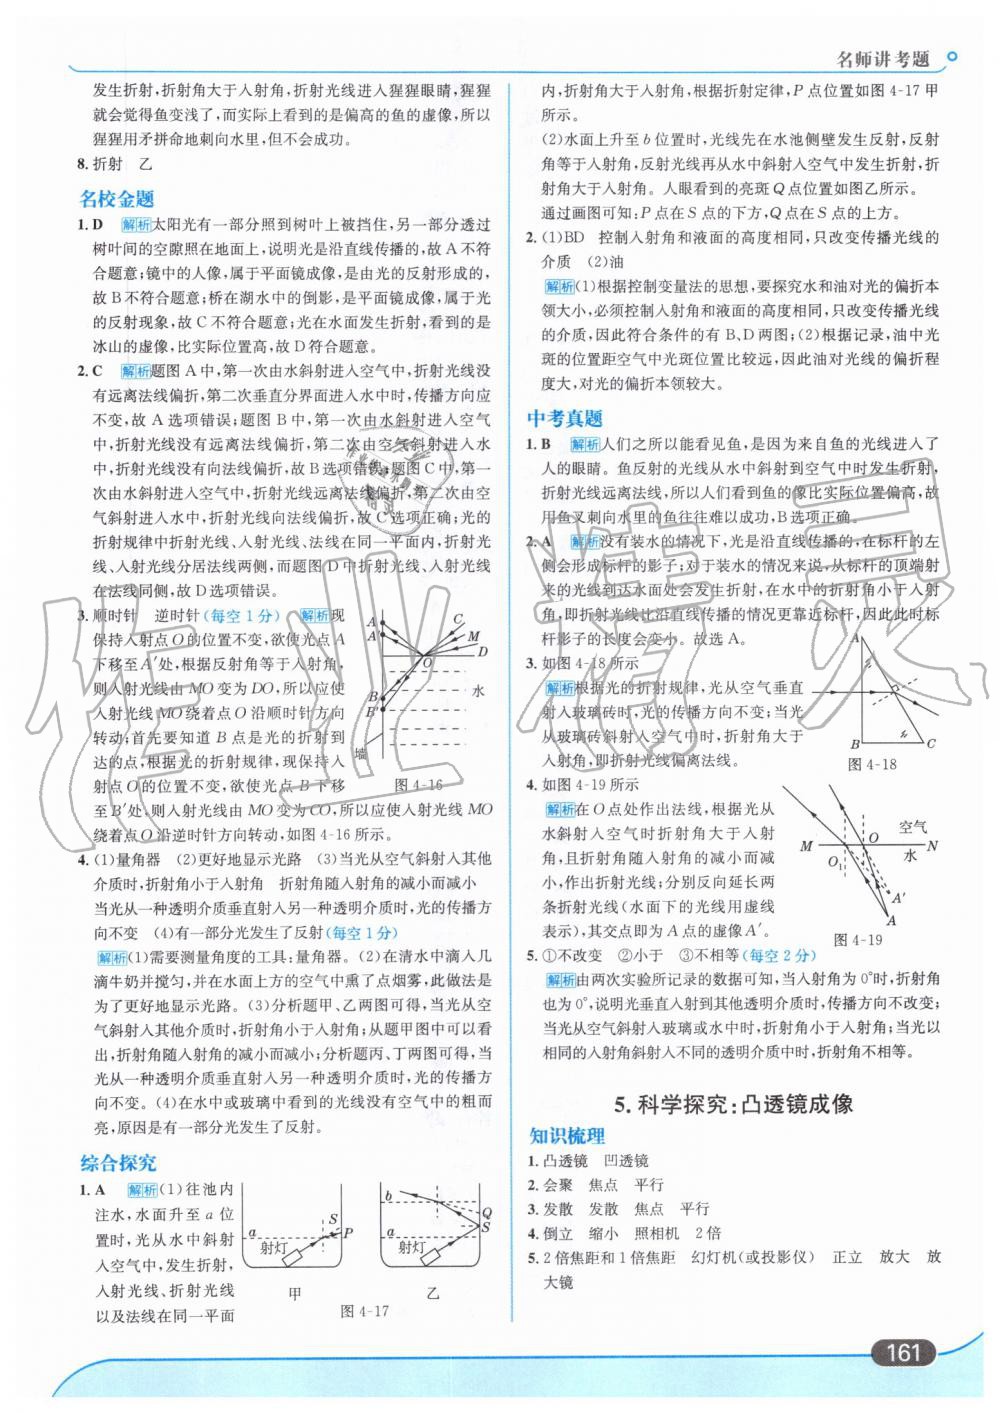 名师讲考题
发生折射,折射角大于入射角,折射光线进入猩猩眼睛,猩猩
就会觉得鱼变浅了,而实际上看到的是偏高的鱼的虚像,所以
猩猩用矛拼命地刺向水里,但不会成功。
8. 折射 乙
名校金题
1. D 解析 太阳光有一部分照到树叶上被挡住,另一部分透过
树叶间的空隙照在地面上,说明光是沿直线传播的,故 A 不符
合题意;镜中的人像,属于平面镜成像,是由光的反射形成的,
故 B 不符合题意;桥在湖水中的倒影,是平面镜成像,属于光
的反射现象,故 C 不符合题意;光在水面发生折射,看到的是
冰山的虚像,比实际位置高,故 D 符合题意。
2. C 解析 题图 A 中,第一次由水斜射进入空气中,折射光线没
有远离法线偏折,第二次垂直分界面进入水中时,传播方向应
不变,故 A 选项错误;题图 B 中,第一次由水斜射进入空气
中,折射光线没有远离法线偏折,第二次由空气斜射进入水
中,折射光线没有向法线偏折,故 B 选项错误;题图 C 中,第一
次由水斜射进入空气中,折射光线远离法线偏折,第二次由空
气斜射进入水中,折射光线向法线偏折,故 C 选项正确;光的
折射规律中折射光线、入射光线、法线在同一平面内,折射光
线、入射光线分居法线两侧,而题图 D 中折射光线、入射光线
在法线同侧,故 D 选项错误。
3. 顺时针 逆时针(每空 1 分) 解析 现
保持入射点 O 的位置不变,欲使光点 A
下移至 A′ 处,根据反射角等于入射角,
则入射光线由 MO 变为 DO,所以应使
入射光线 MO 绕着点 O 沿顺时针方向
转动;首先要知道 B 点是光的折射到
达的点;根据光的折射规律,现保持入
射点 O 的位置不变,欲使光点 B 下移
至 B′ 处,则入射光线由 MO 变为 CO,所以应使入射光线 MO
绕着点 O 沿逆时针方向转动,如图 4-16 所示。
A
A′
B
B′
墙
O
C
M
D
水
图 4-16
4. (1)量角器 (2)更好地显示光路 (3)当光从空气斜射入其他
介质时,折射角小于入射角 折射角随入射角的减小而减小
当光从一种透明介质垂直射入另一种透明介质时,光的传播方
向不变 (4)有一部分光发生了反射(每空 1 分)
解析 (1)需要测量角度的工具:量角器。(2)在清水中滴入几
滴牛奶并搅匀,并在水面上方的空气中熏了点烟雾,此做法是
为了更好地显示光路。(3)分析题甲、乙两图可得,当光从空
气斜射入其他介质时,折射角小于入射角;从题甲图中可以看
出,折射角随入射角的减小而减小;分析题丙、丁两图可得,当
光从一种透明介质垂直射入另一种透明介质时,光的传播方
向不变。(4)在水中或玻璃中看到的光线没有空气中的粗而
亮,原因是有一部分光发生了反射。
综合探究
1. A 解析 (1)往池内
注水,水面升至 a 位
置时,光从水中斜射
入空气中,发生折射,
入射光线、折射光线
以及法线在同一平面
a
S
P
射灯
甲
b
a
Q
S
射灯
乙
图 4-17
内,折射角大于入射角,根据折射定律,P 点位置如图 4-17 甲
所示。
(2)水面上升至 b 位置时,光线先在水池侧壁发生反射,反射
角等于入射角,反射光线再从水中斜射入空气中发生折射,折
射角大于入射角。人眼看到的亮斑 Q 点位置如图乙所示。
通过画图可知:P 点在 S 点的下方,Q 点在 S 点的上方。
2. (1)BD 控制入射角和液面的高度相同,只改变传播光线的
介质 (2)油
解析 (1)根据控制变量法的思想,要探究水和油对光的偏折本
领大小,必须控制入射角和液面的高度相同,只改变传播光线
的介质,因此符合条件的有 B、D 两图;(2)根据记录,油中光
斑的位置距空气中光斑位置比较远,因此油对光线的偏折程
度大,对光的偏折本领较大。
中考真题
1. B 解析 人们之所以能看见鱼,是因为来自鱼的光线进入了
人的眼睛。鱼反射的光线从水中斜射到空气中时发生折射,
折射光线远离法线,所以人们看到鱼的像比实际位置偏高,故
用鱼叉刺向水里的鱼往往难以成功,B 选项正确。
2. A 解析 没有装水的情况下,光是沿直线传播的,在标杆的左
侧会形成标杆的影子;对于装水的情况来说,从标杆的顶端射
来的光线到达水面处会发生折射,在水中的折射角小于入射
角,即折射光线比沿直线传播的情况更靠近标杆,因此此时标
杆影子的长度会变小。故选 A。
3. 如图 4-18 所示
解析 根据光的折射规律,光从空气垂直
射入玻璃砖时,光的传播方向不变;当光
从玻璃砖斜射入空气中时,折射角大于
入射角,即折射光线偏离法线。
A
B
C
图 4-18
4. 如图 4-19 所示
解析 在 O 点处作出法线,根据光从
水斜射入空气时折射角大于入射
角,且折射角随入射角的减小而减
小,作出折射光线;分别反向延长两
条折射光线(水面下的光线用虚线
表示),其交点即为 A 点的虚像 A′。
M
O₁
O
空气
水
N
A′
A
图 4-19
5. ①不改变 ②小于 ③不相等(每空 2 分)
解析 由两次实验所记录的数据可知,当入射角为 0°时,折射角
也为 0°,说明光垂直入射到其他透明介质时,传播方向不改变;
当光从空气斜射入玻璃或水中时,折射角小于入射角;当光以
相同的入射角斜射入不同的透明介质中时,折射角不相等。
5. 科学探究:凸透镜成像
知识梳理
1. 凸透镜 凹透镜
2. 会聚 焦点 平行
3. 发散 发散 焦点 平行
4. 倒立 缩小 照相机 2 倍
5. 2 倍焦距和 1 倍焦距 幻灯机(或投影仪) 正立 放大 放
大镜
161
作业精灵